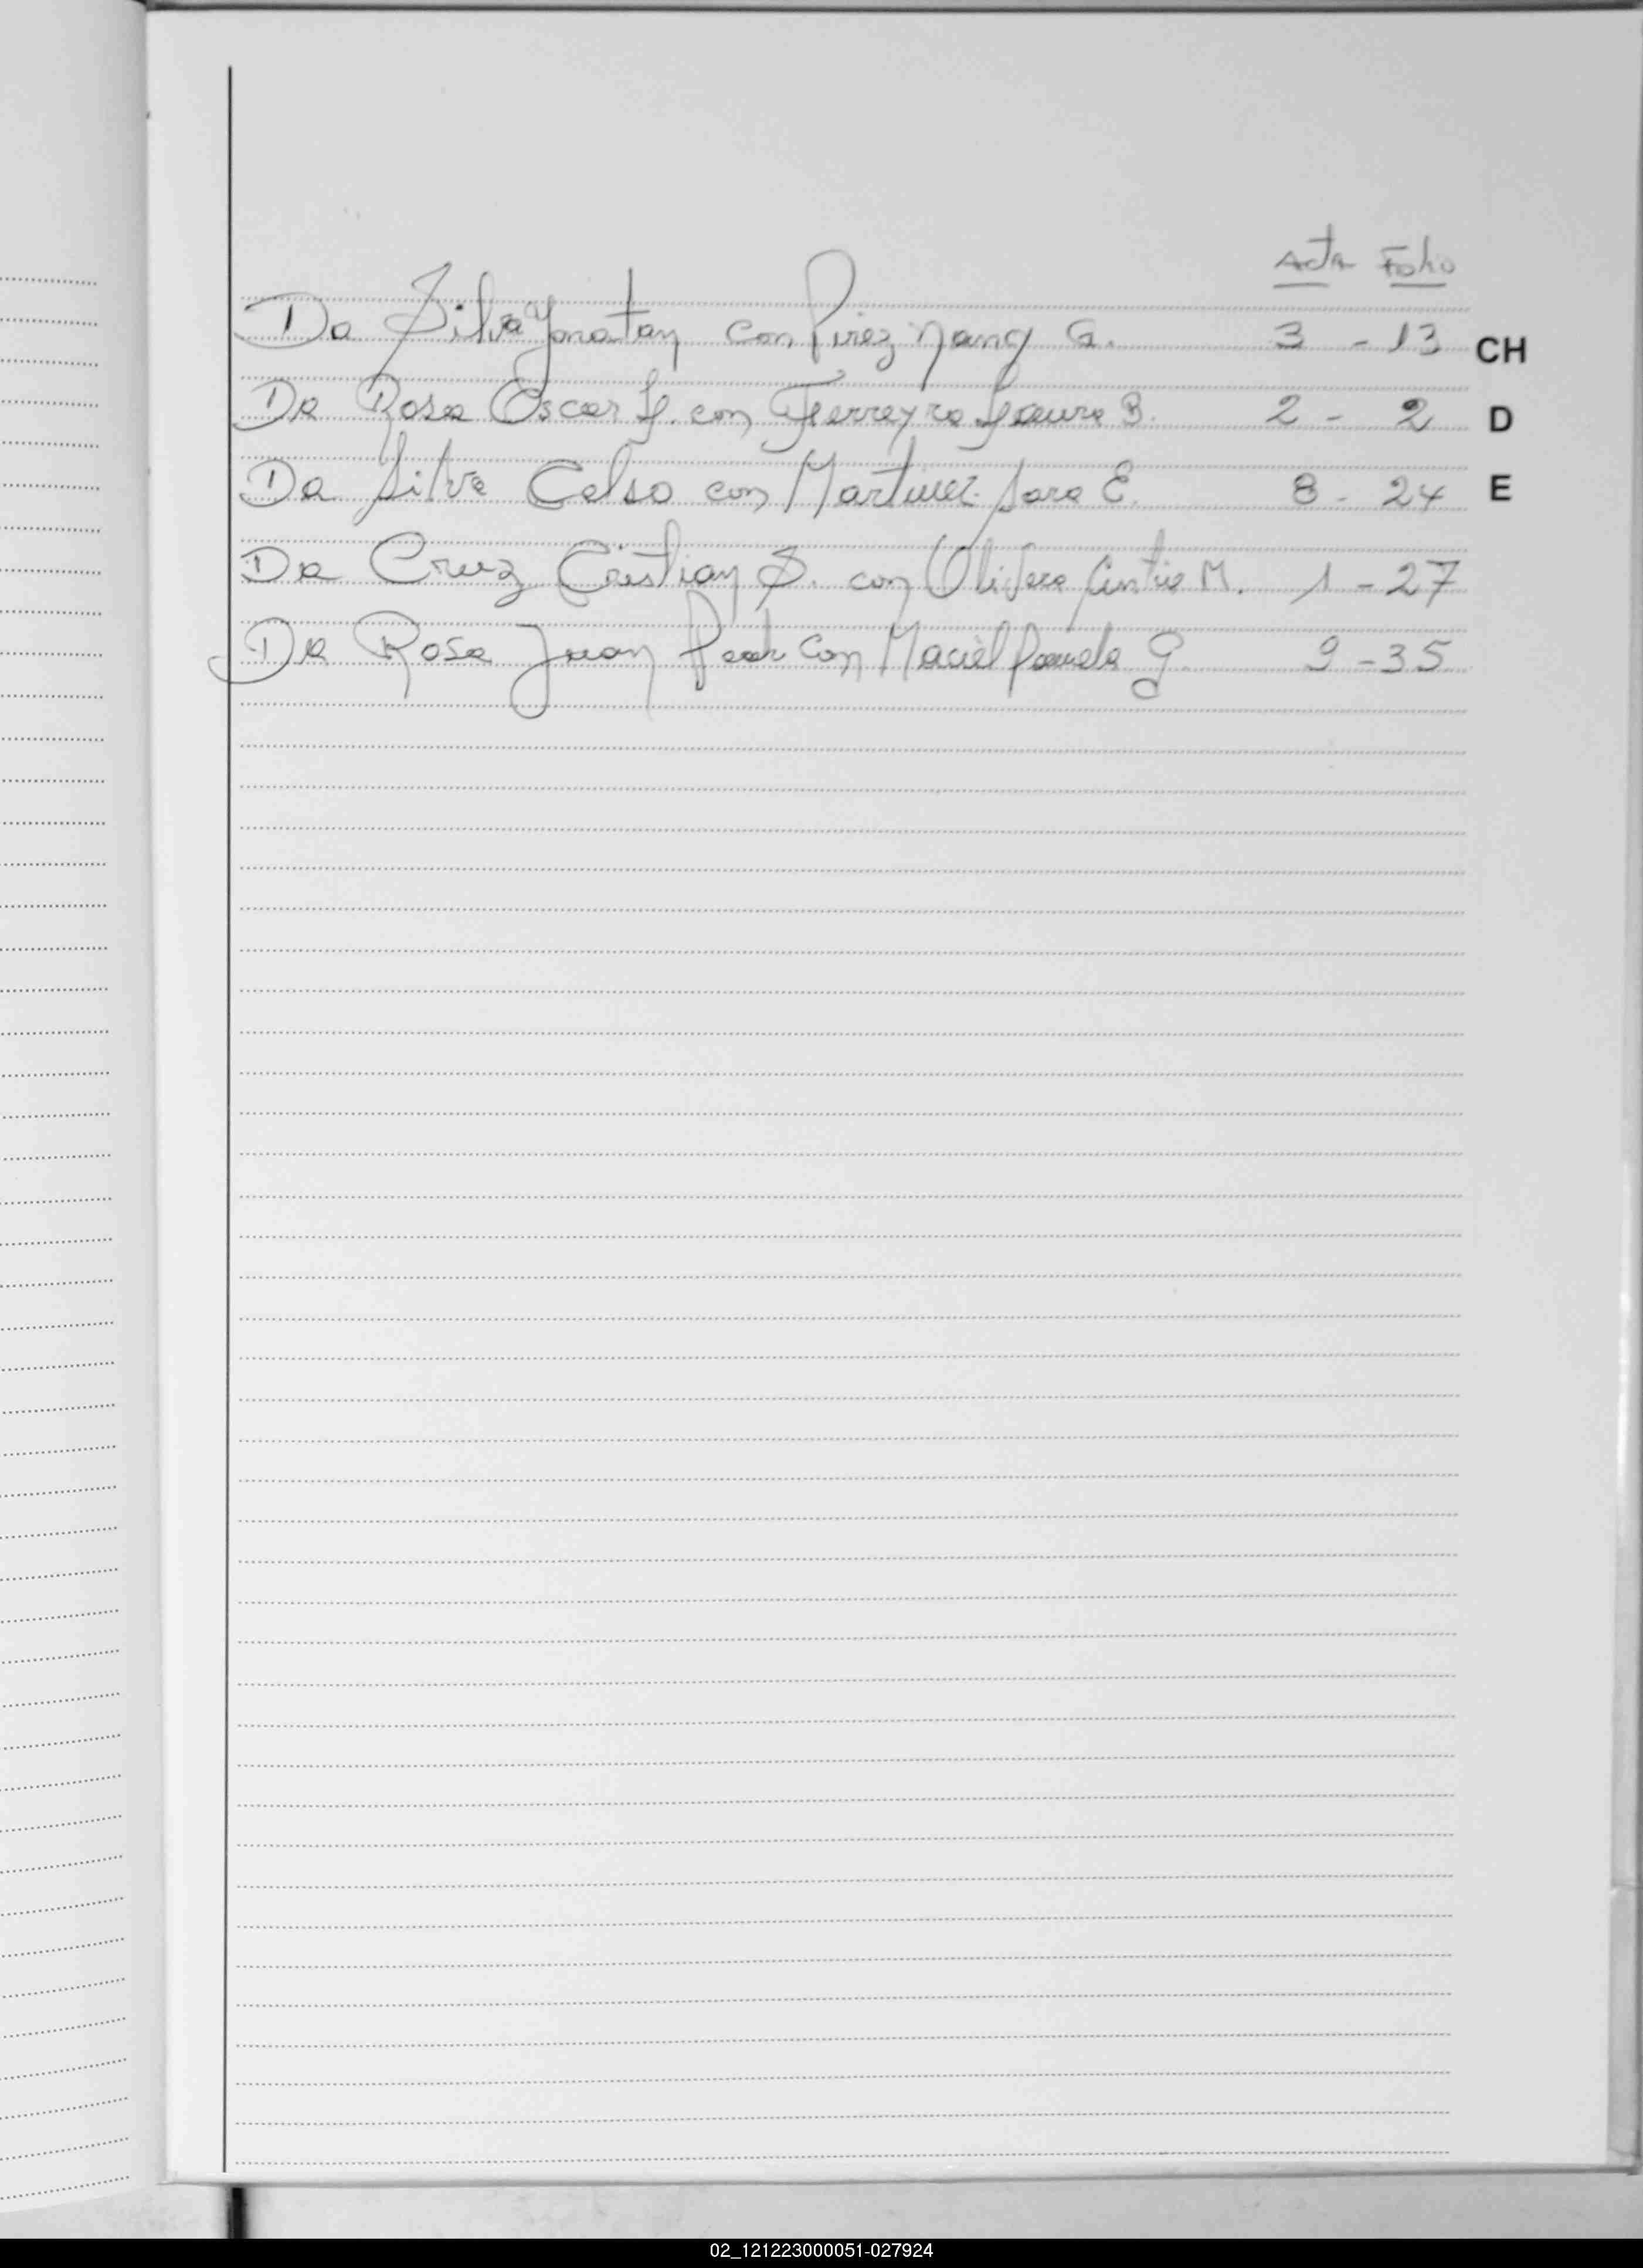 Acta Folio
Da Silva Yonatan con Pirez Nancy G. 3 - 13 CH
Da Rosa Oscar J. con Ferreyra Laura B. 2 - 2 D
Da Silva Celso con Martinez Sara E. 8 - 24 E
Da Cruz Cristian S. con Olivera Cintia M. 1 - 27
Da Rosa Juan con Maciel Pamela G. 9 - 35
02_121223000051-027924